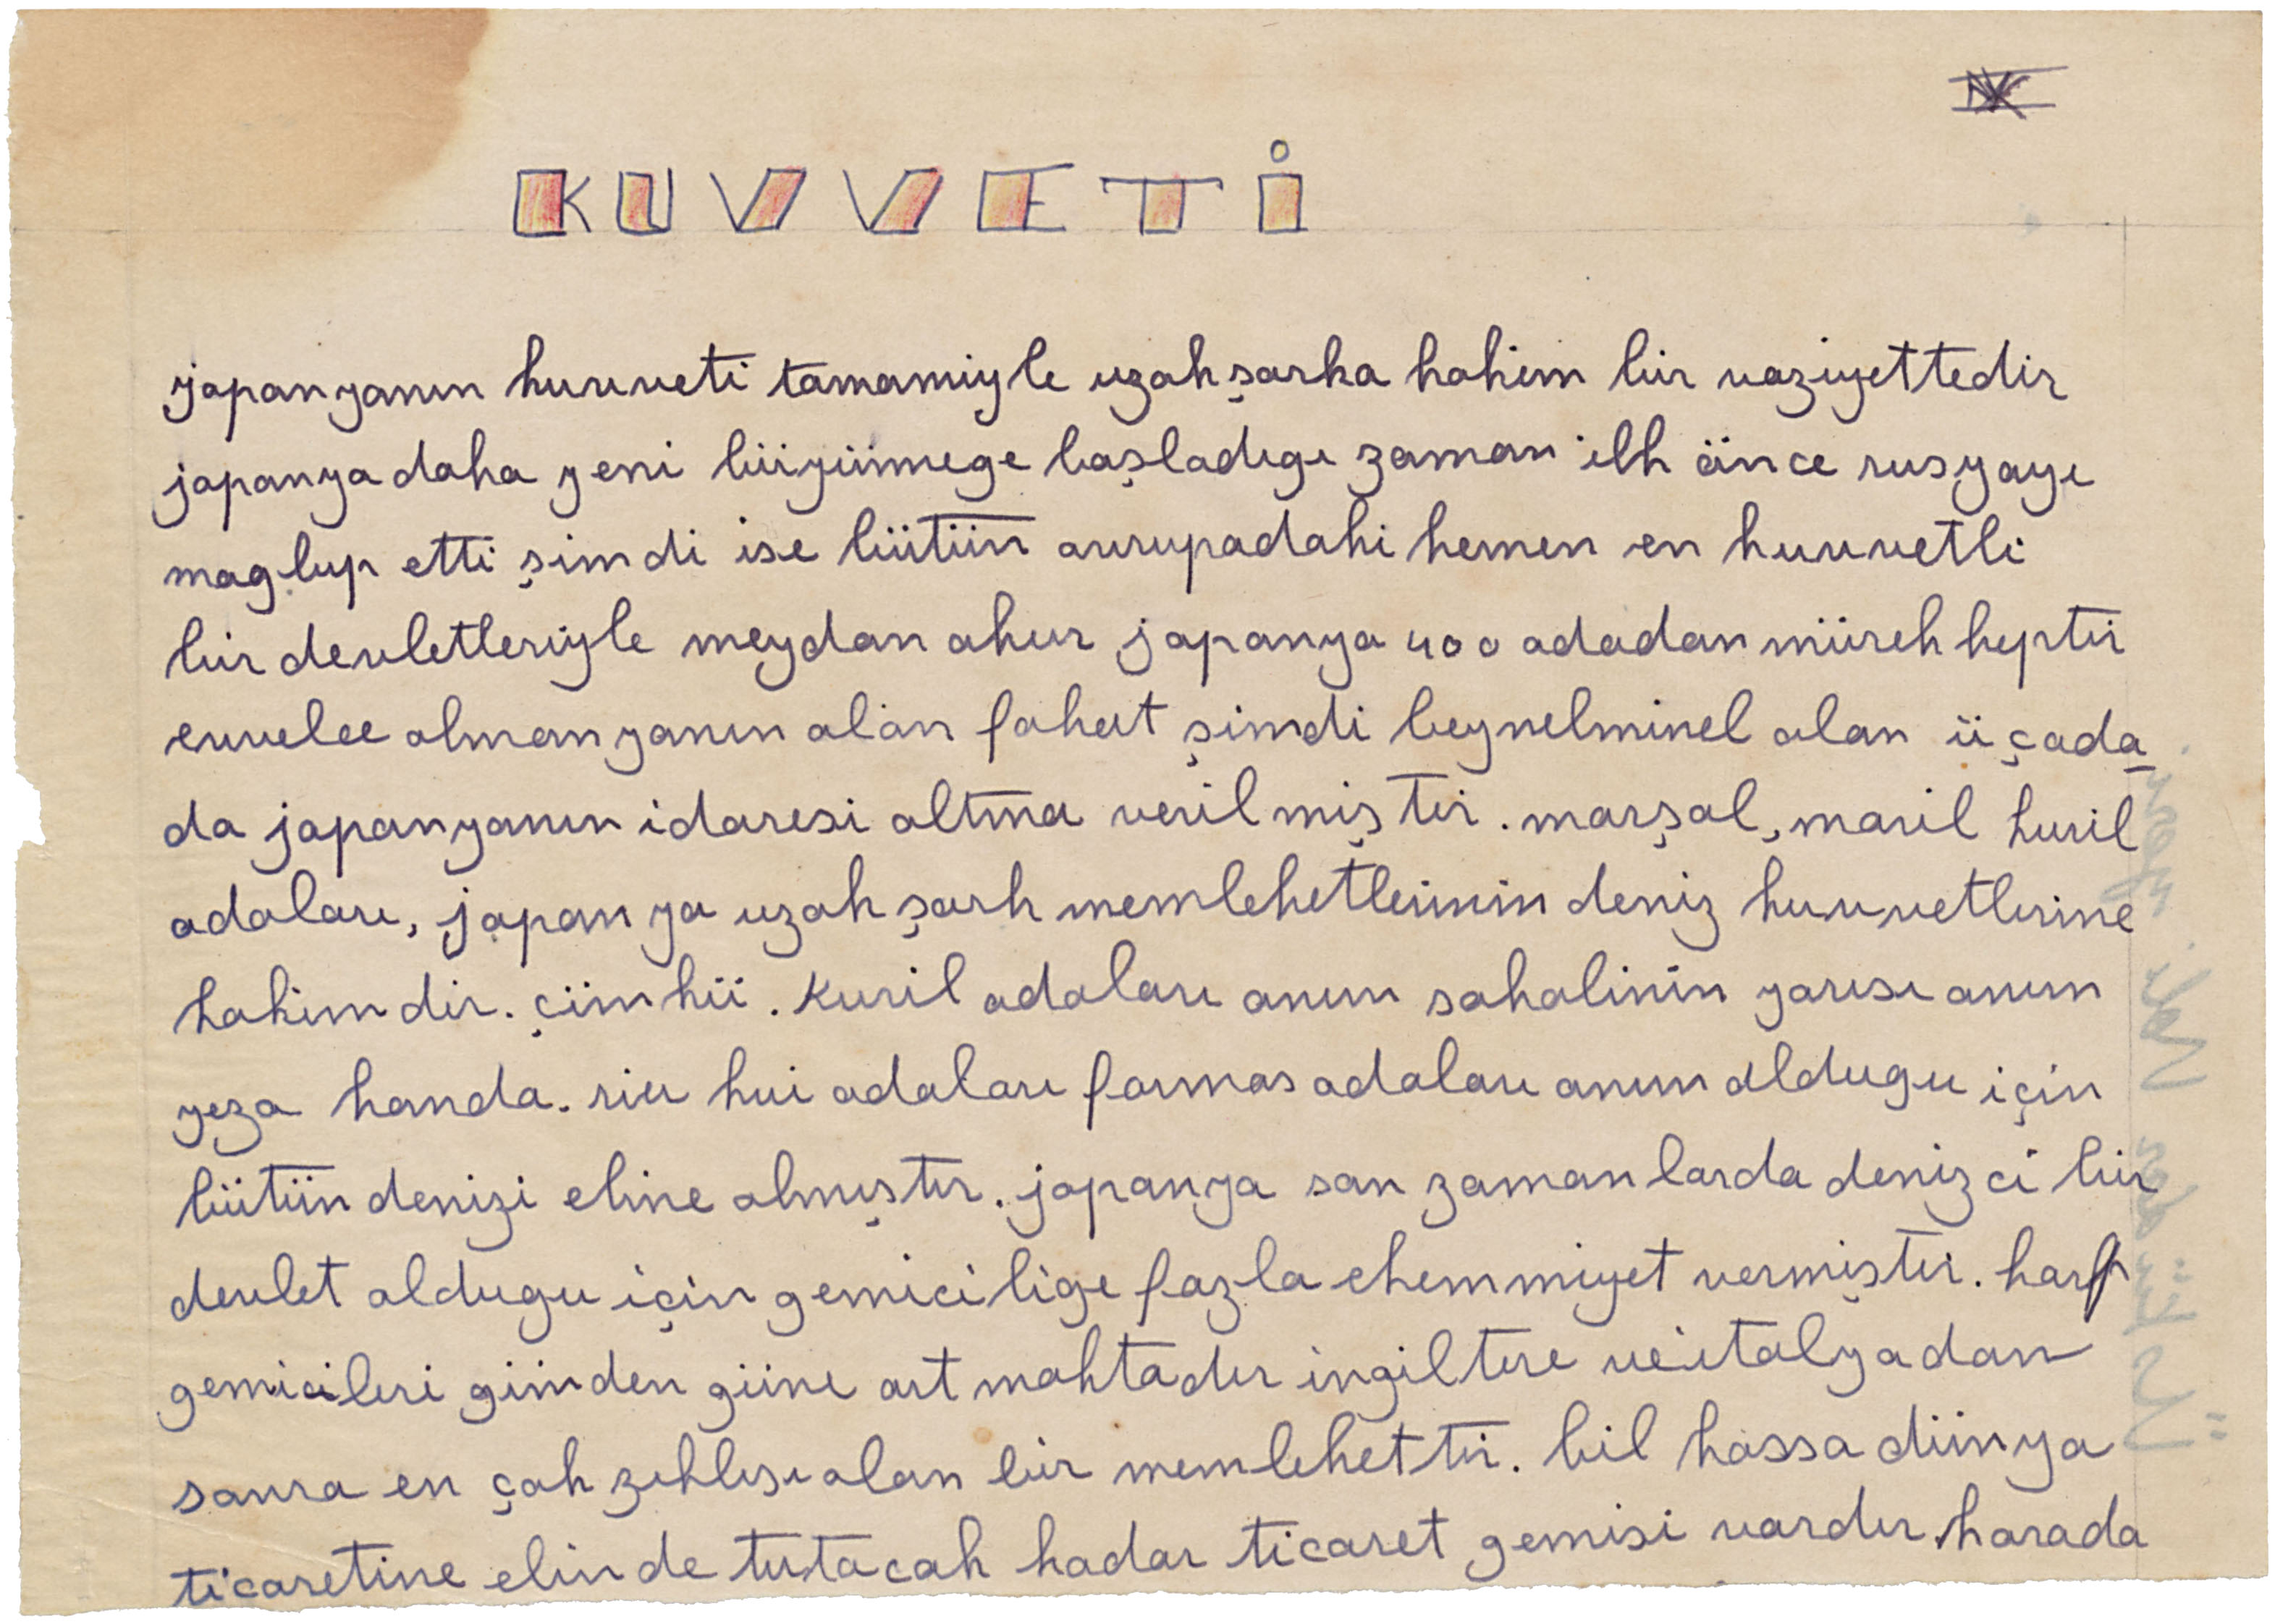 KUVVETİ
japonyanın kuvveti tamamiyle uzak şarka hakim bir vaziyettedir
japonya daha yeni büyümege başladıgı zaman ilk önce rusyayı
maglup etti şimdi ise bütün avrupadaki hemen en kuvvetli
bir devletleriyle meydan okur japonya 400 adadan mürekkeptir
evvelce almanyanın olan fakat şimdi beynelminel olan üç ada
da japonyanın idaresi altına verilmiştir. marşal, maril kuril
adaları, japonya uzak şark memleketlerinin deniz kuvvetlerine
hakimdir. çünkü. Kuril adaları onun sahalinin yarısı onun
yezo hondo. riu kui adaları formos adaları onun oldugu için
bütün denizi eline almıştır. japonya son zamanlarda denizci bir
devlet oldugu için gemicilige fazla ehemmiyet vermiştir. harp
gemicileri günden güne artmaktadır ingiltere ve italyadan
sonra en çok zıhlısı olan bir memlekettir. bil hassa dünya
ticaretine elinde tutacak kadar ticaret gemisi vardır. karada